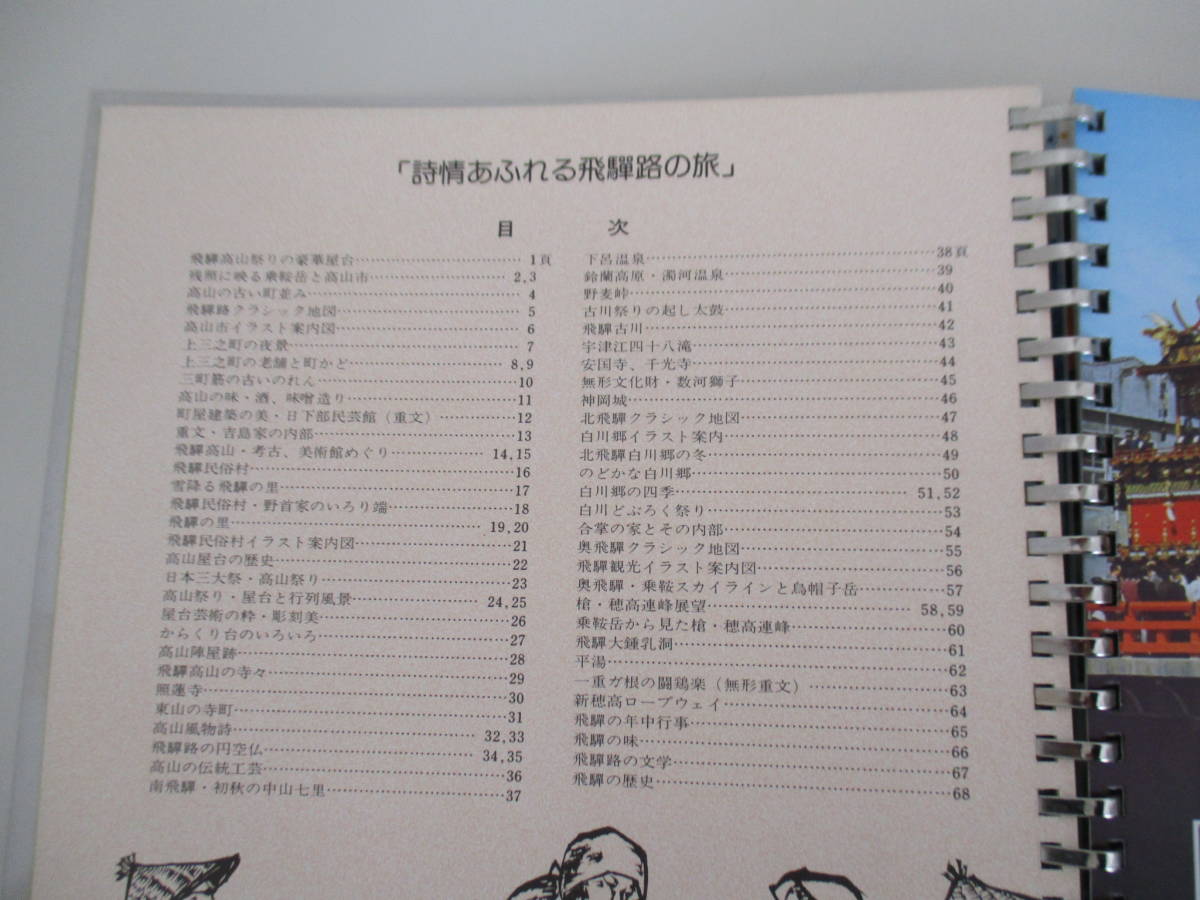 「詩情あふれる飛驒路の旅」
目次
飛驒高山祭りの豪華屋台……1頁
残照に映る乗鞍岳と高山市……2,3
高山の古い町並み……4
飛驒路クラシック地図……5
高山市イラスト案内図……6
上三之町の夜景……7
上三之町の老舗と町かど……8,9
三町筋の古いのれん……10
高山の味・酒、味噌造り……11
町屋建築の美・日下部民芸館(重文)……12
重文・吉島家の内部……13
飛驒高山・考古、美術館めぐり……14,15
飛驒民俗村……16
雪降る飛驒の里……17
飛驒民俗村・野首家のいろり端……18
飛驒の里……19,20
飛驒民俗村イラスト案内図……21
高山屋台の歴史……22
日本三大祭・高山祭り……23
高山祭り・屋台と行列風景……24,25
屋台芸術の粋・彫刻美……26
からくり台のいろいろ……27
高山陣屋跡……28
飛驒高山の寺々……29
照蓮寺……30
東山の寺町……31
高山風物詩……32,33
飛驒路の円空仏……34,35
高山の伝統工芸……36
南飛驒・初秋の中山七里……37
下呂温泉……38頁
鈴蘭高原・濁河温泉……39
野麦峠……40
古川祭りの起し太鼓……41
飛驒古川……42
宇津江四十八滝……43
安国寺、千光寺……44
無形文化財・数河獅子……45
神岡城……46
北飛驒クラシック地図……47
白川郷イラスト案内……48
北飛驒白川郷の冬……49
のどかな白川郷……50
白川郷の四季……51,52
白川どぶろく祭り……53
合掌の家とその内部……54
奥飛驒クラシック地図……55
飛驒観光イラスト案内図……56
奥飛驒・乗鞍スカイラインと烏帽子岳……57
槍・穂高連峰展望……58,59
乗鞍岳から見た槍・穂高連峰……60
飛驒大鍾乳洞……61
平湯……62
一重ガ根の闘鶏楽(無形重文)……63
新穂高ロープウェイ……64
飛驒の年中行事……65
飛驒の味……66
飛驒路の文学……67
飛驒の歴史……68